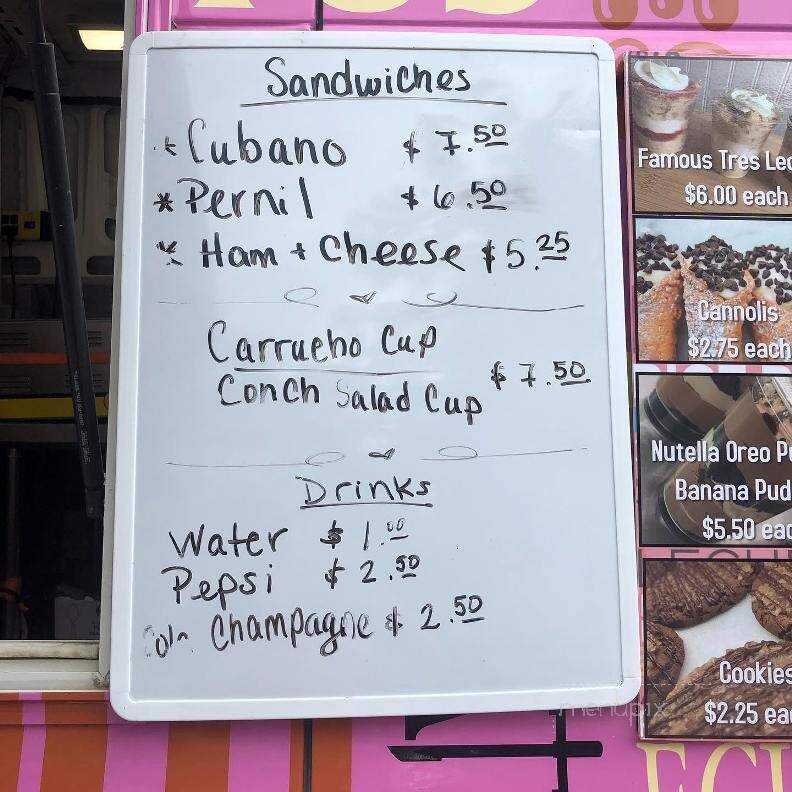 Sandwiches
* Cubano $ 7.50
* Pernil $ 6.50
* Ham + Cheese $5.25
Carrucho Cup
Conch Salad Cup $ 7.50
Drinks
Water $ 1.00
Pepsi $ 2.50
Champagne $ 2.50
Famous Tres Lec
$6.00 each
Cannolis
$2.75 each
Nutella Oreo Pu
Banana Pud
$5.50 eac
Cookies
$2.25 ea
menupix